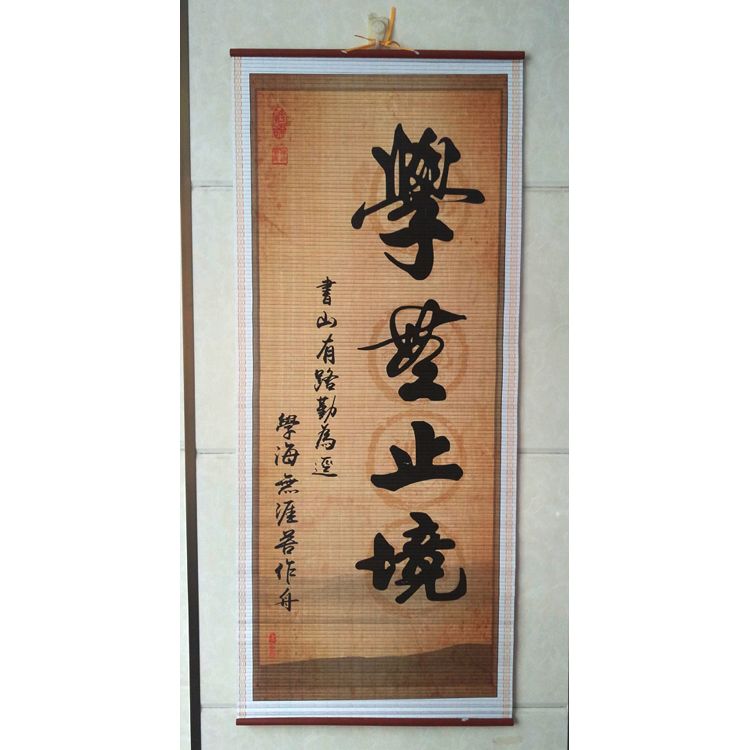 學無止境
書山有路勤為逕
學海無涯苦作舟